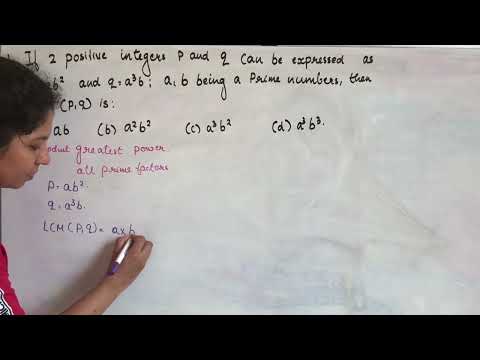 If 2 positive integers P and q can be expressed as
b² and q = a³b ; a, b being a Prime numbers, then
(P,q) is:
ab (b) a²b² (c) a³b² (d) a³b³.
greatest power
all prime factors
P = ab².
q = a³b.
LCM (P,q) = a × b